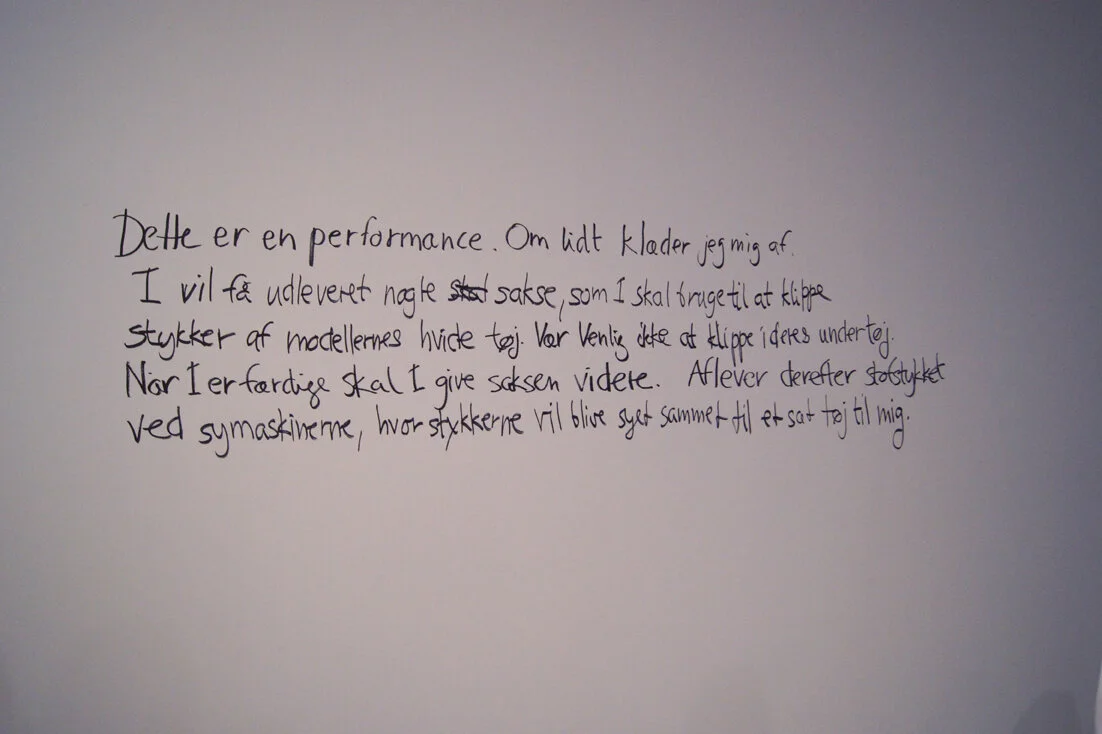 Dette er en performance. Om lidt klæder jeg mig af.
I vil få udleveret nogle sakse, som I skal bruge til at klippe
stykker af modellernes hvide tøj. Vær Venlig ikke at klippe i deres undertøj.
Når I er færdige skal I give saksen videre. Aflever derefter stofstykket
ved symaskinerne, hvor stykkerne vil blive syet sammet til et sæt tøj til mig.